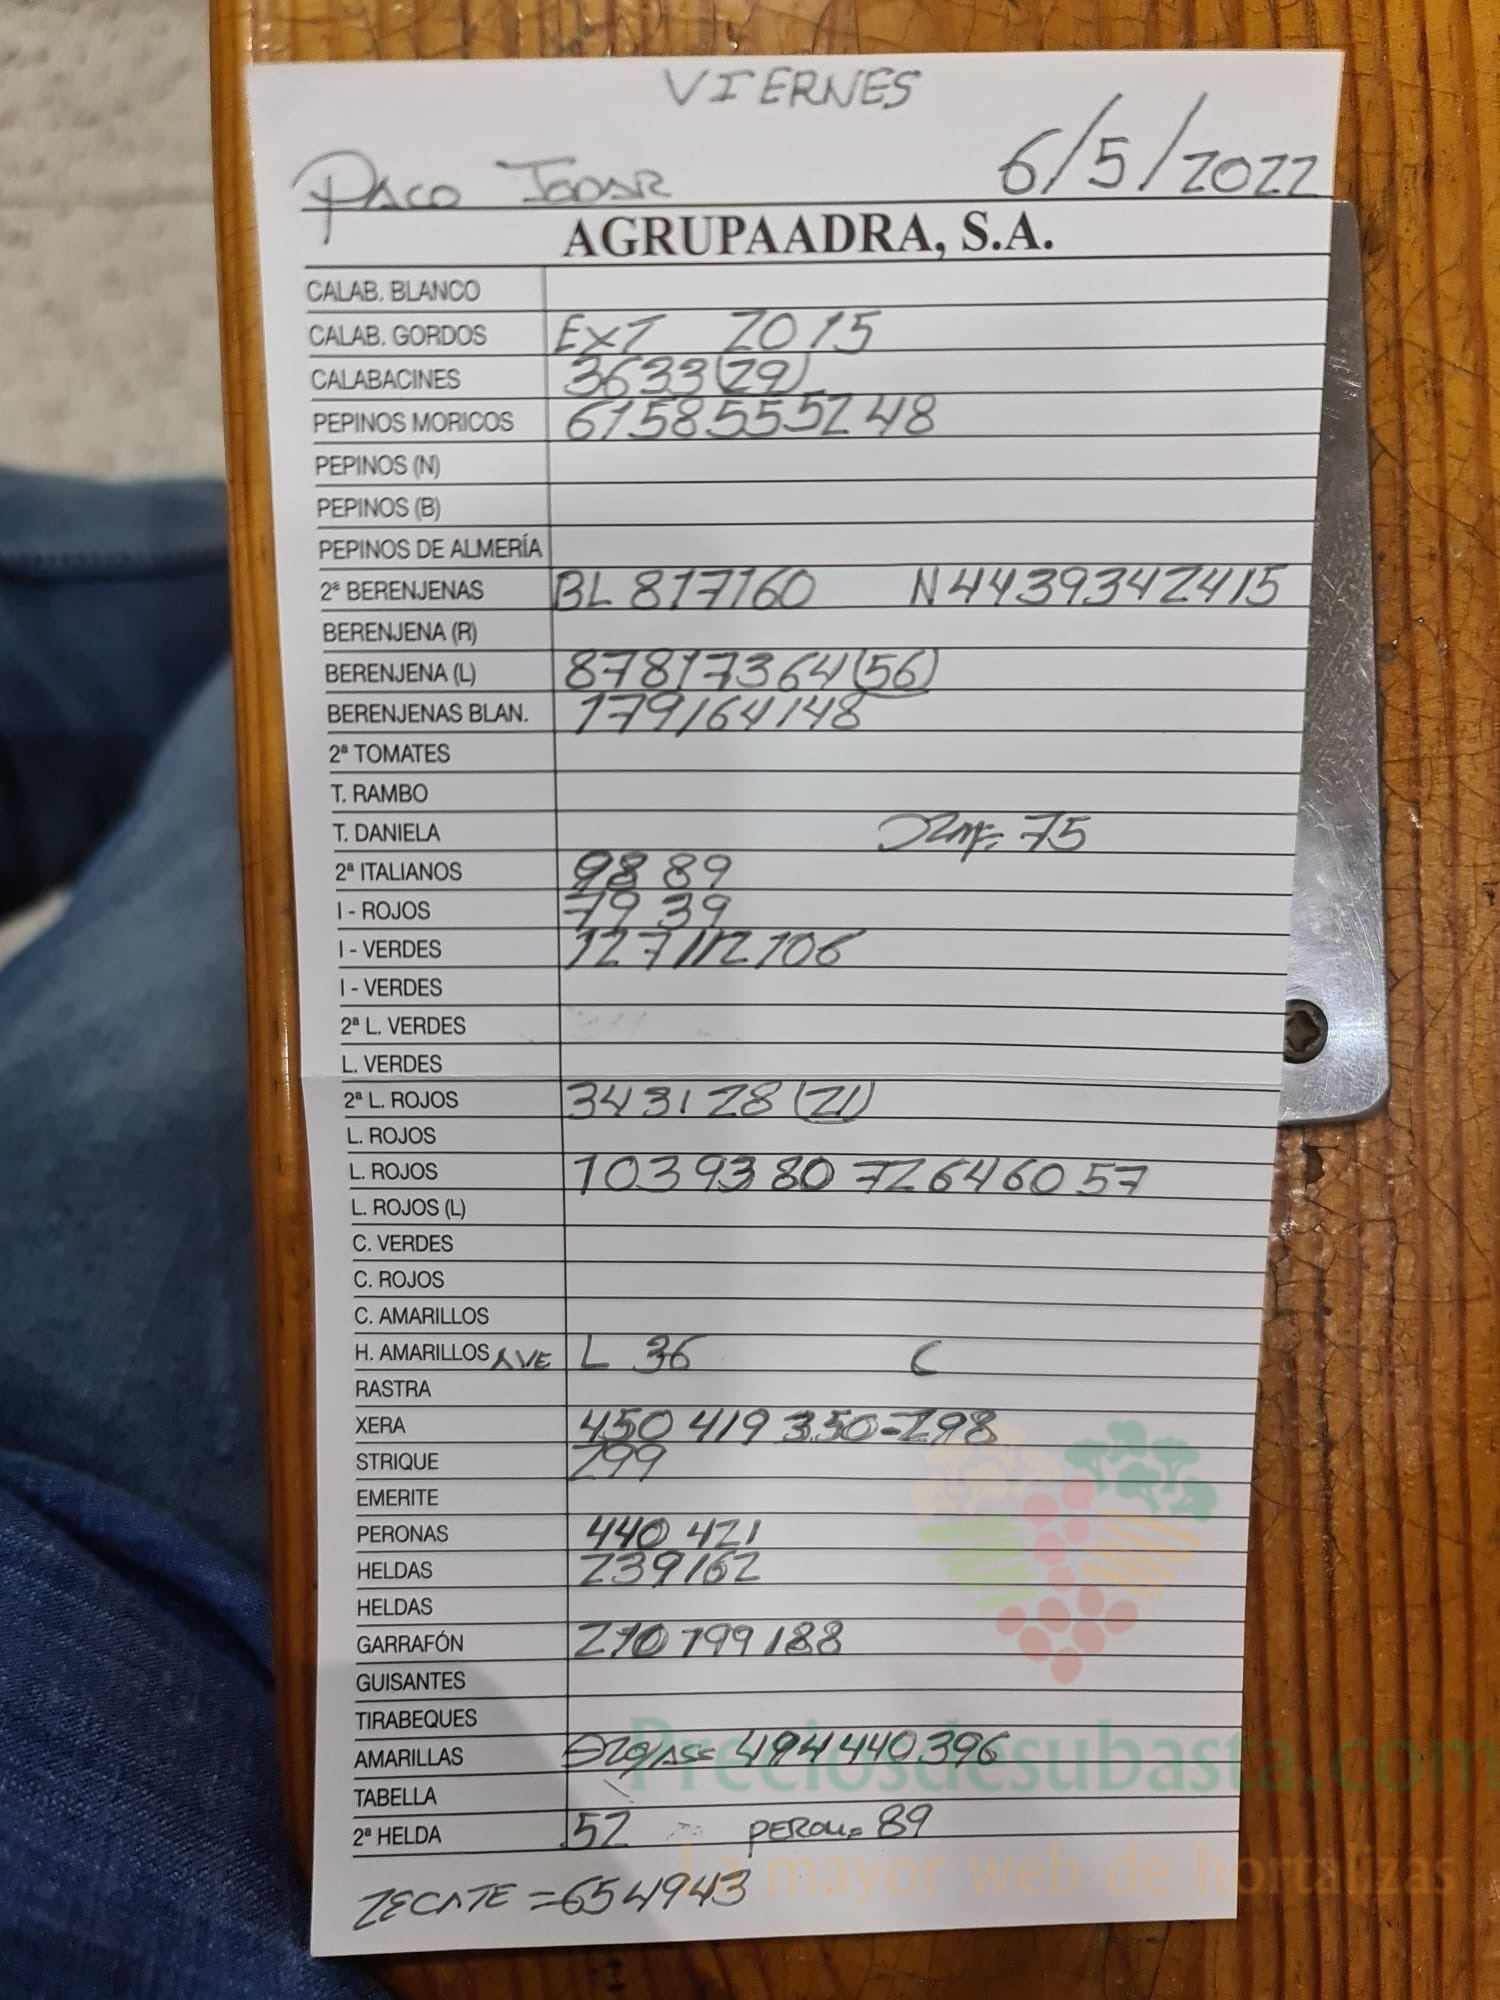 VIERNES
PACO JODAR 6/5/2022
AGRUPAADRA, S.A.
CALAB. BLANCO
CALAB. GORDOS EXT 20 15
CALABACINES 36 33 (29)
PEPINOS MORICOS 61 58 55 52 48
PEPINOS (N)
PEPINOS (B)
PEPINOS DE ALMERÍA
2ª BERENJENAS BL 81 71 60 N 44 39 34 24 15
BERENJENA (R)
BERENJENA (L) 87 81 73 64 (56)
BERENJENAS BLAN. 179 164 148
2ª TOMATES
T. RAMBO
T. DANIELA 75
2ª ITALIANOS 98 89
I - ROJOS 79 39
I - VERDES 127 112 106
I - VERDES
2ª L. VERDES
L. VERDES
2ª L. ROJOS 34 31 28 (21)
L. ROJOS
L. ROJOS 103 93 80 72 64 60 57
L. ROJOS (L)
C. VERDES
C. ROJOS
C. AMARILLOS
H. AMARILLOS AVE L 36 C
RASTRA
XERA 450 419 350=298
STRIQUE 299
EMERITE
PERONAS 440 421
HELDAS 239 162
HELDAS
GARRAFÓN 210 199 188
GUISANTES
TIRABEQUES
AMARILLAS 494 440 396
TABELLA
2ª HELDA 52 PERON= 89
ZECATE =65 49 43
Preciosdesubasta.com
La mayor web de hortalizas